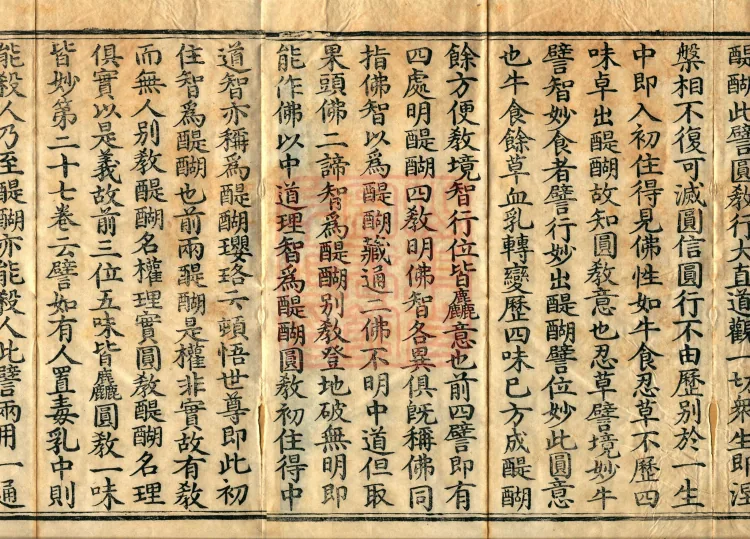 醍醐此譬圓教行大直道觀一切衆生即涅
槃相不復可滅圓信圓行不由歷別於一生
中即入初住得見佛性如牛食忍草不歷四
味卓出醍醐故知圓教意也忍草譬境妙牛
譬智妙食者譬行妙出醍醐譬位妙此圓意
也牛食餘草血乳轉變歷四味已方成醍醐
餘方便教境智行位皆麤意也前四譬即有
四處明醍醐四教明佛智各異俱旣稱佛同
指佛智以爲醍醐藏通二佛不明中道但取
果頭佛二諦智爲醍醐別教登地破無明即
能作佛以中道理智爲醍醐圓教初住得中
道智亦稱爲醍醐瓔珞云頓悟世尊即此初
住智爲醍醐也前兩醍醐是權非實故有教
而無人別教醍醐名權理實圓教醍醐名理
俱實以是義故前三位五味皆麤圓教一味
皆妙第二十七卷云譬如有人置毒乳中則
能殺人乃至醍醐亦能殺人此譬兩用一通